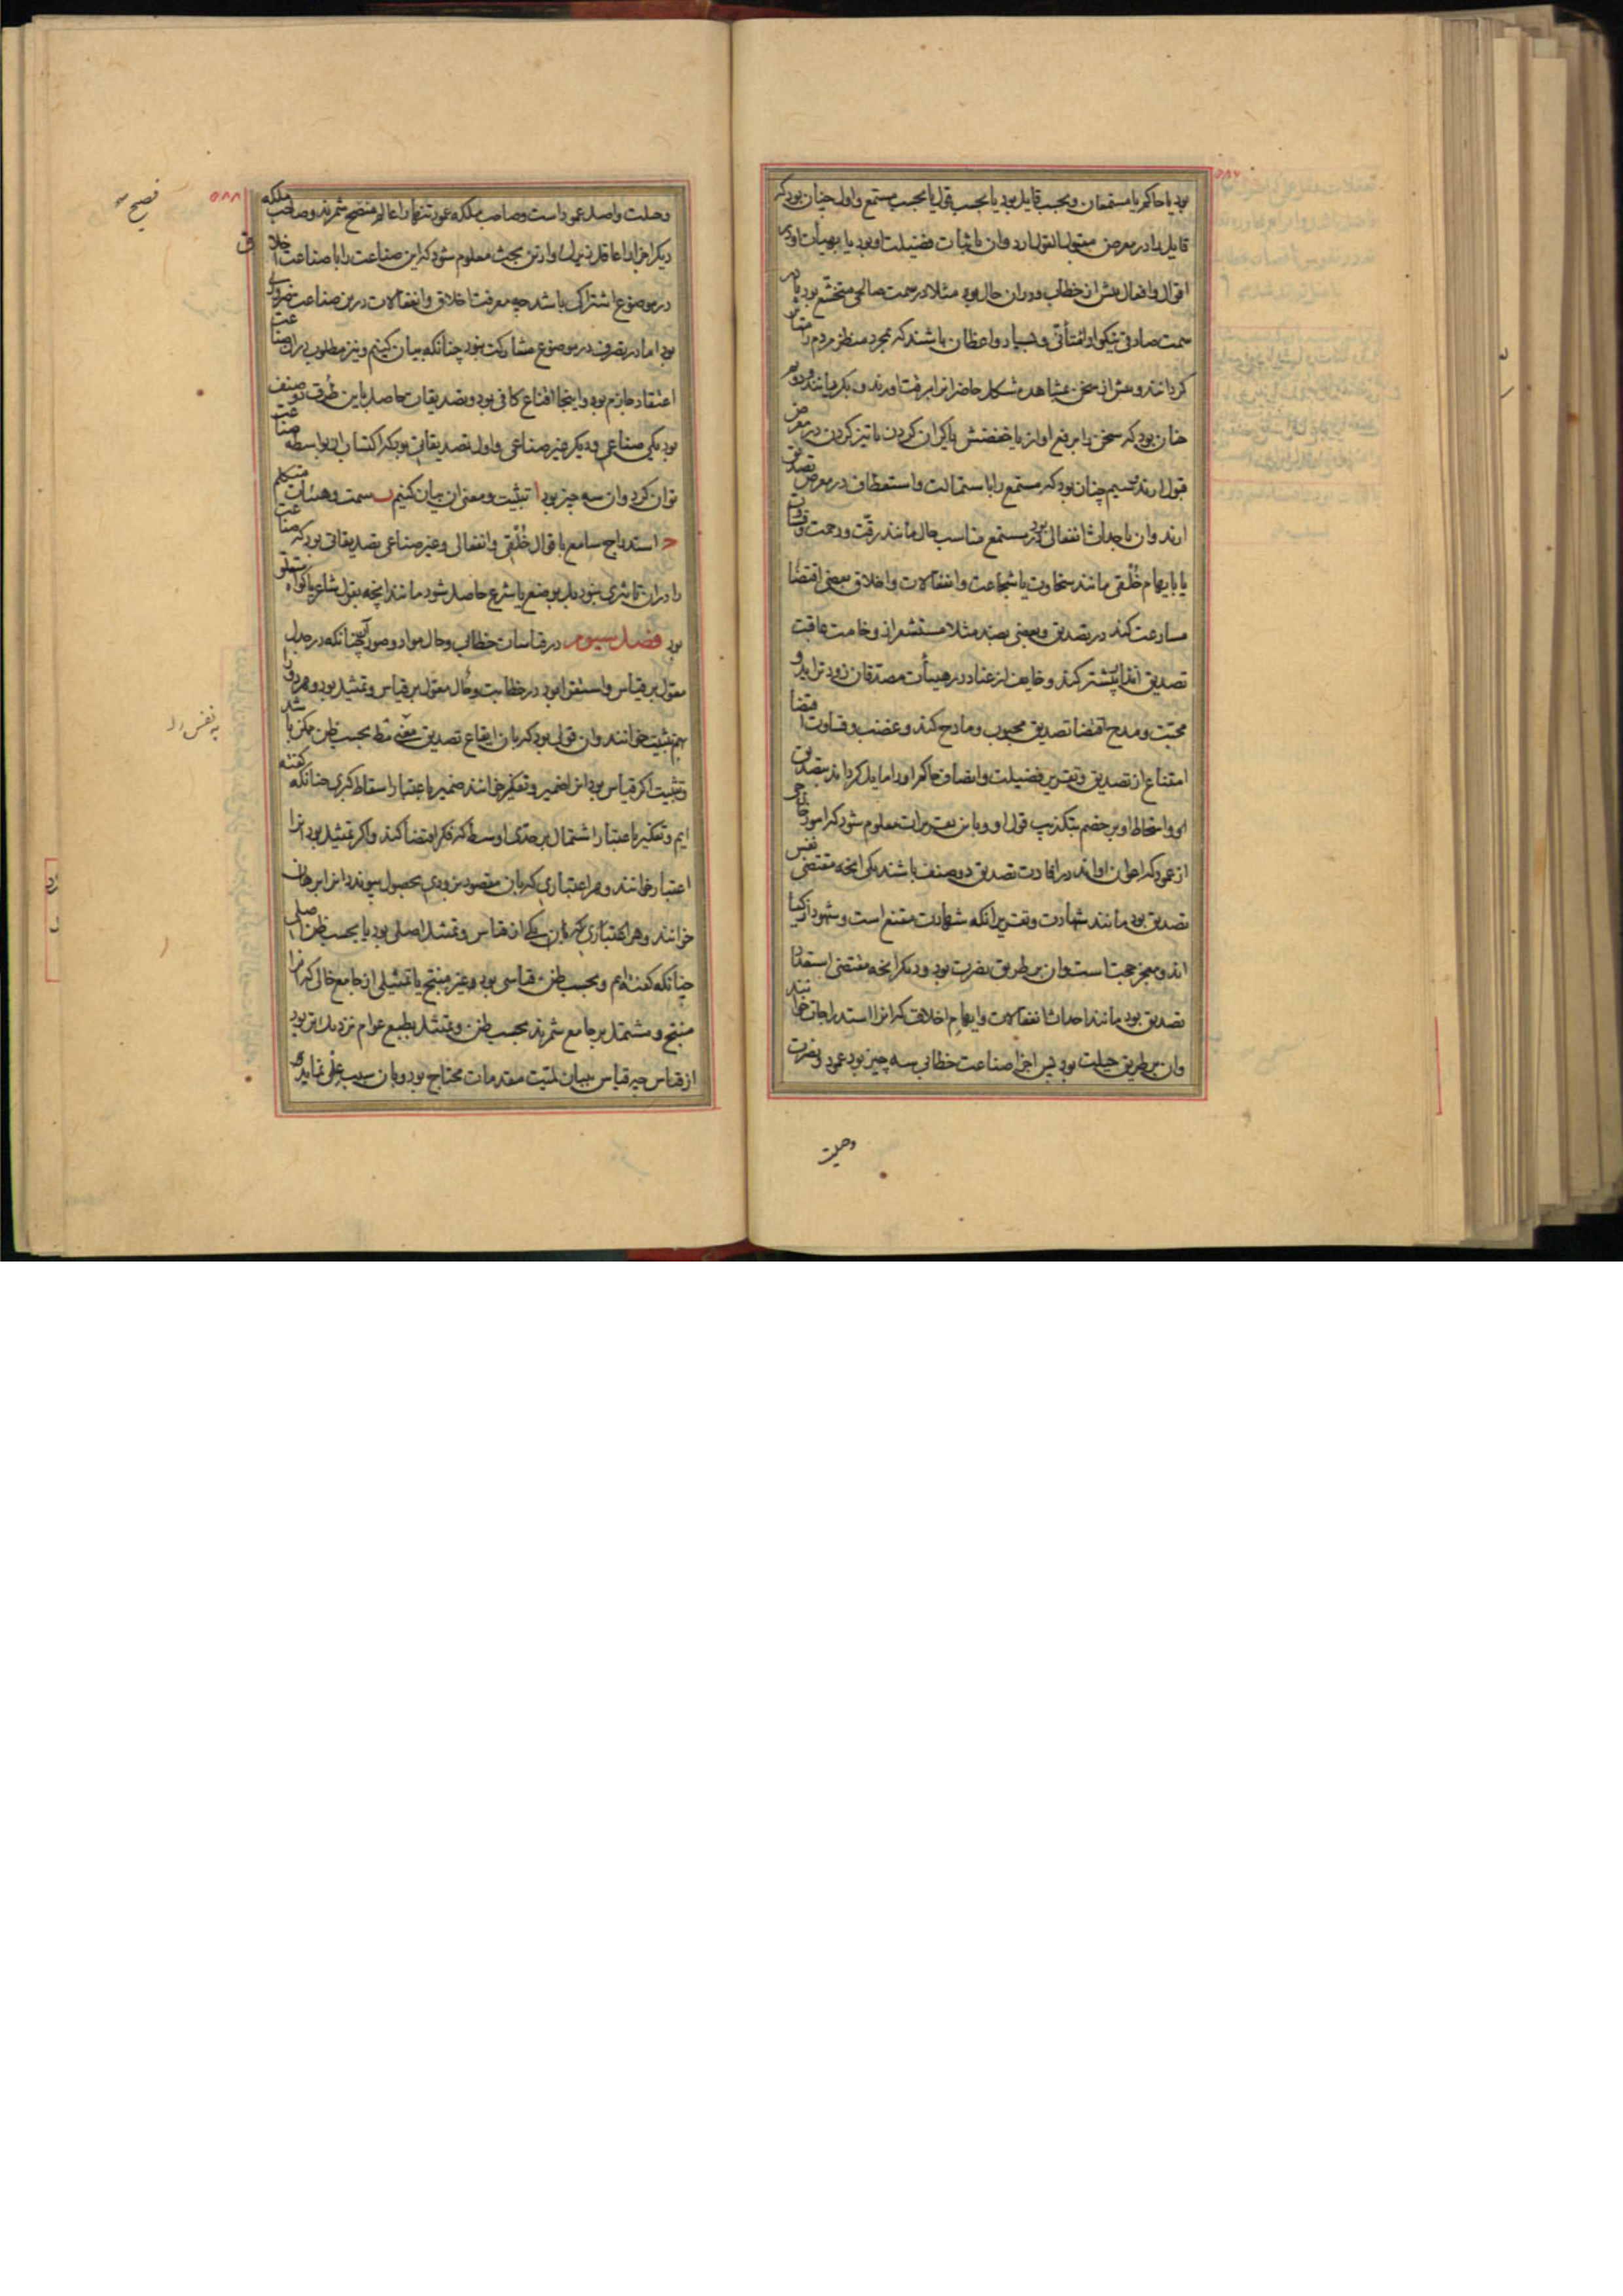 بود یا حاکم یا مستمعان و بحسب قایل بود یا بحسب قول یا بحسب مستمع و اول چنان بود که
قایل را در معرض مقبول القول ارد و ان باثبات فضیلت او بود یا بهیأت او در
اقوال و افعال پیش از خطاب و در ان حال بود مثلا در سمت صالحی متخشع بود یا در
سمت صادقی نیکو او لقمانی و بسیار واعظان باشند که بمجرد منظر مردم را متاثر
گردانند و پیش از سخن بمشاهده شکل حاضرانرا برقت اورند و بگریانند و دوم
چنان بود که سخن را برفع اواز یا خفضش یا گران کردن یا تیز کردن در معرض
قبول ارند و سیم چنان بود که مستمع را باستمالت و استعطاف در معرض تصدیق
ارند و ان باحداث انفعالی بود در مستمع مناسب حال مانند رقت و رحمت و قساوت
یا بایهام خُلقی مانند سخاوت یا شجاعت و انفعالات و اخلاق بعضی اقتضا
مسارعت کند در تصدیق و بعضی بضد مثلا مستشعر از وخامت عاقبت
تصدیق انذار بیشتر کند و خایف از عناد در هیبات مصدقان زودتر اید و
محبت و مدح اقتضا تصدیق محبوب و مادح کند و غضب و قساوت اقتضا
امتناع از تصدیق و تقریر فضیلت و انصاف حاکم او را مایل گرداند بتصدیق
او و اسخاط او بر خصم بتکذیب قول او و باین تقدیرات معلوم شود که امور خارجی
از عمود که اعوان او اند در افادت تصدیق دو صنف باشند یکی انچه مقتضی نفس
تصدیق بود مانند شهادت و تقریر انکه شهادت مقنع است و شهود ازکیا
اند و معجز حجت است و ان بر طریق نصرت بود و دیگر انچه مقتضی استعداد
تصدیق بود مانند احداث انفعالات و ایهام اخلاق که انرا استدراجات خوانند
و ان بر طریق حیلت بود پس اجزا صناعت خطابی سه چیز بود عمود و نصرت
وحیلت
۵۸۷
۵۸۸
فصیح
وحیلت و اصل عمود است و صاحب ملکه عمود تنها را عالم منضج شمرند و صاحب ملکه
در موضوع اشتراک باشد چه معرفت اخلاق و انفعالات درین صناعت ضروری
بود اما در تصرف در موضوع مشارکت نبود چنانکه بیان کنیم و نیز مطلوب در ان صناعت
اعتقاد جازم بود و اینجا اقناع کافی بود و تصدیقات حاصل باین طرق دو صنف
بود یکی صناعی و دیگر غیر صناعی و اول تصدیقاتی بود که اکتساب ان بواسطه صناعت
توان کرد و ان سه چیز بود ا تثبیت و معنی ان بیان کنیم ب سمت و هیئات متکلم
ج استدراج سامع باقوال خُلقی و انفعالی و غیر صناعی تصدیقاتی بود که صناعت
را در ان تاثیری نبود بل بوضع یا شرع حاصل شود مانند انچه بقول شاعر یا گواه متعلق
بود فصل سیوم در قیاسات خطابی و حال مواد و صور ان چنانکه در جدل
معول بر قیاس و استقرا بود در خطابت و حال معول بر قیاس و تمثیل بود و هر دو را
بهم تثبیت خوانند و ان قولی بود که بان ایقاع تصدیق بمعنی مط بحسب ظن ممکن باشد
و تثبیت اگر قیاس بود انرا ضمیر و تفکیر خوانند ضمیر باعتبار اسقاط کبری چنانکه گفته
ایم و تفکیر باعتبار اشتمال بر حدی اوسط که فکر اقتضا کند و اگر تمثیل بود انرا
اعتبار خوانند و هر اعتباری که بان مقصود بزودی بحصول پیوندد انرا برهان
خوانند و هر اعتباری که بان یکی از قیاس و تمثیل اصلی بود یا بحسب ظن اصلی
چنانکه گفته ایم و بحسب ظن قیاسی بود غیر منتج یا تمثیلی از جامع خالی که انرا
منتج و مشتمل بر جامع شمرند بحسب ظن و تمثیل بطبع عوام نزدیک تر بود
از قیاس چه قیاس ببیان لمیت مقدمات محتاج بود و بان سبب علمی نماید که